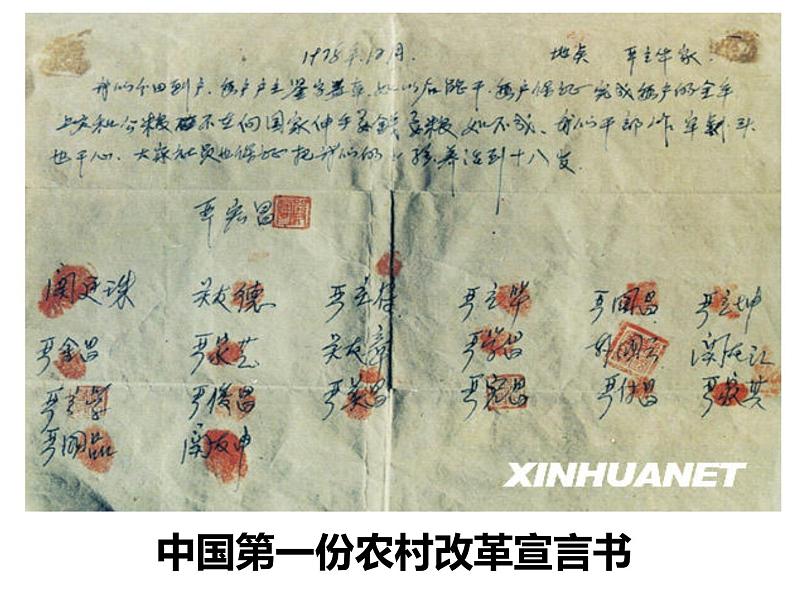 1978年12月. 地点 严立华家.
我们分田到户.每户户主签字盖章.如以后能干.每户保证完成每户的全年
上交和公粮.不在向国家伸手要钱要粮.如不成.我们干部作牢刹头
也干心.大家社员也保证把我们的小孩养活到十八岁.
严宏昌
关廷珠 关友德 严立符 严立华 严国昌 严立坤
严金昌 严家芝 关友章 严学昌 韩国云 关友江
严立学 严俊昌 严美昌 严宏昌 严付昌 严家其
严国品 关友申
XINHUANET
中国第一份农村改革宣言书